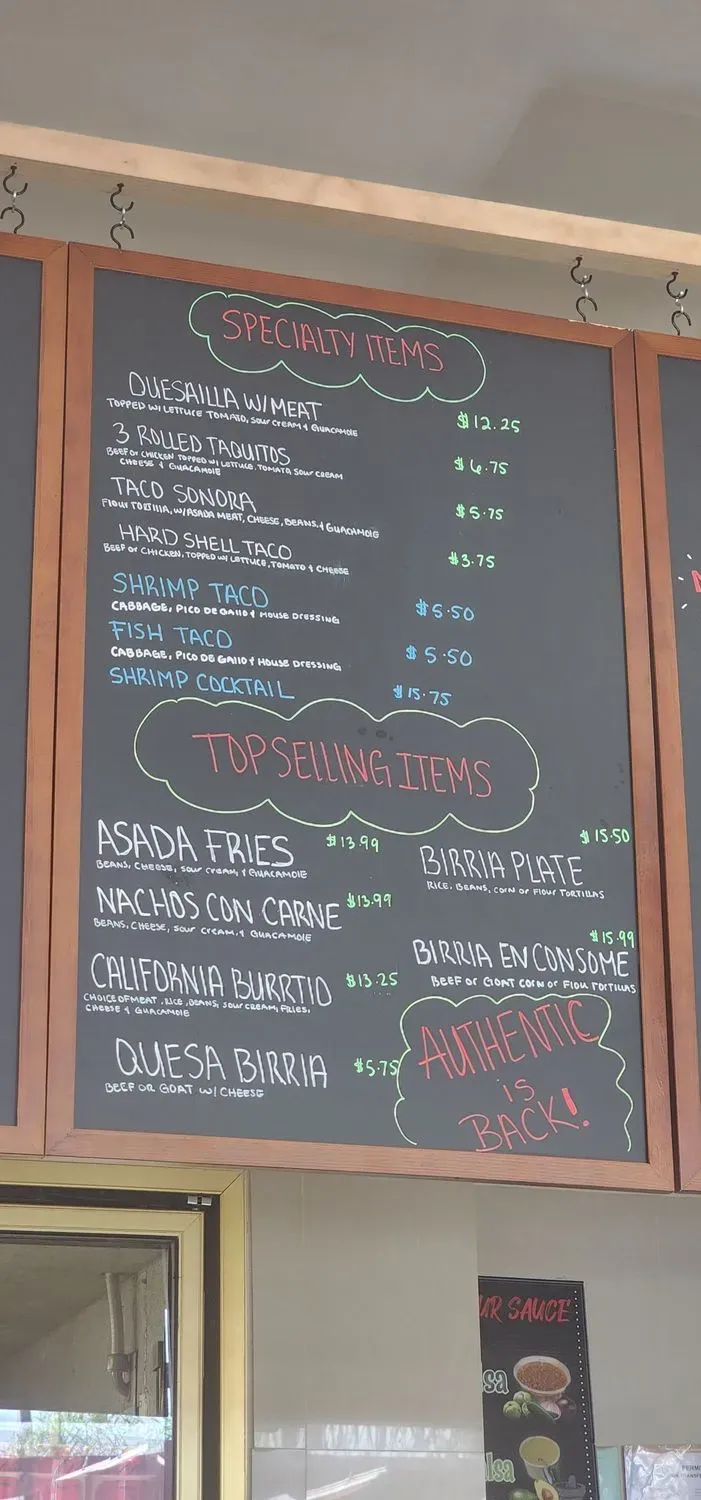 SPECIALTY ITEMS
QUESAILLA W/MEAT
$12.25
TOPPED W/ LETTUCE TOMATO, SOUR CREAM & GUACAMOLE
3 ROLLED TAQUITOS
$6.75
BEEF OR CHICKEN TOPPED W/ LETTUCE, TOMATO, SOUR CREAM
CHEESE & GUACAMOLE
TACO SONORA
$5.75
FLOUR TORTILLA, W/ASADA MEAT, CHEESE, BEANS, & GUACAMOLE
HARD SHELL TACO
$3.75
BEEF OR CHICKEN, TOPPED W/ LETTUCE, TOMATO & CHEESE
SHRIMP TACO
$5.50
CABBAGE, PICO DE GALLO & HOUSE DRESSING
FISH TACO
$5.50
CABBAGE, PICO DE GALLO & HOUSE DRESSING
SHRIMP COCKTAIL
$15.75
TOP SELLING ITEMS
ASADA FRIES
$13.99
BEANS, CHEESE, SOUR CREAM, & GUACAMOLE
NACHOS CON CARNE
$13.99
BEANS, CHEESE, SOUR CREAM, & GUACAMOLE
CALIFORNIA BURRTIO
$13.25
CHOICE OF MEAT, RICE, BEANS, SOUR CREAM, FRIES,
CHEESE & GUACAMOLE
QUESA BIRRIA
$5.75
BEEF OR GOAT W/ CHEESE
$15.50
BIRRIA PLATE
RICE, BEANS, CORN OR FLOUR TORTILLAS
$15.99
BIRRIA EN CONSOME
BEEF OR GOAT CORN OR FLOU TORTILLAS
AUTHENTIC
is
BACK!
UR SAUCE
sa
lsa